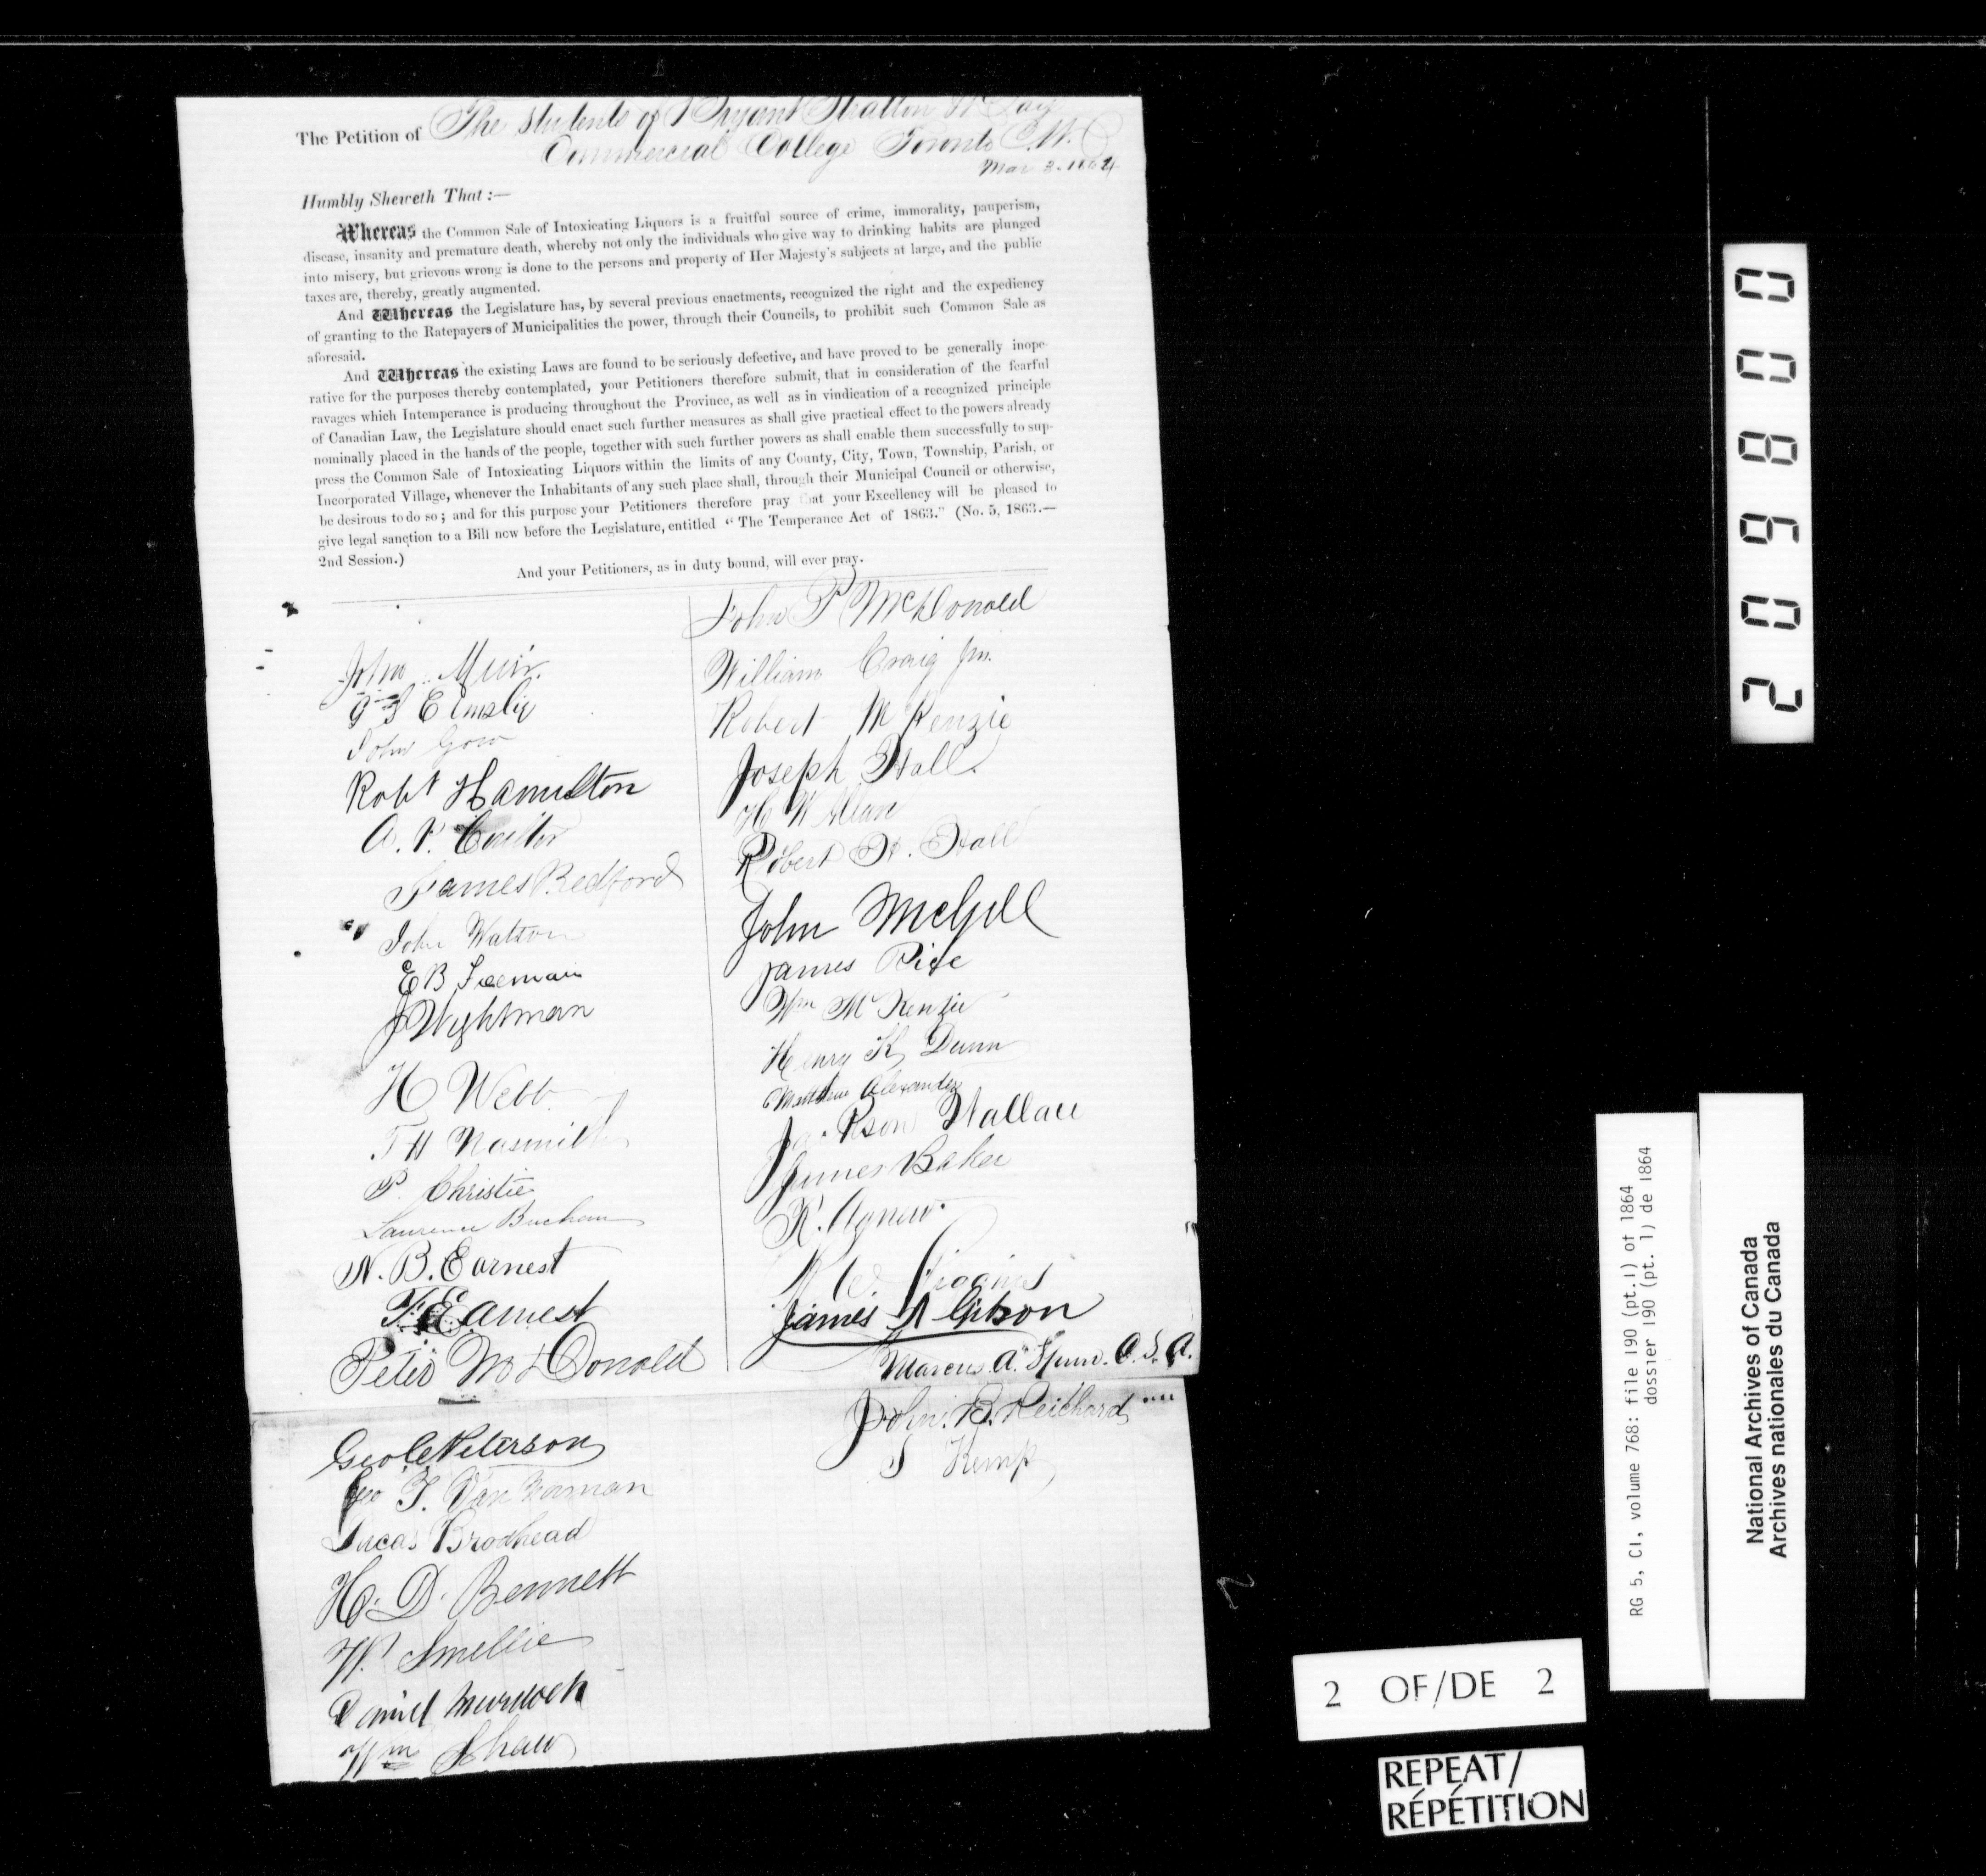 The Petition of The Students of Bryant Stratton &
Commercial College Toronto C.W.
Mar 3. 1864
Humbly Sheweth That :—
Whereas the Common Sale of Intoxicating Liquors is a fruitful source of crime, immorality, pauperism,
disease, insanity and premature death, whereby not only the individuals who give way to drinking habits are plunged
into misery, but grievous wrong is done to the persons and property of Her Majesty's subjects at large, and the public
taxes are, thereby, greatly augmented.
And Whereas the Legislature has, by several previous enactments, recognized the right and the expediency
of granting to the Ratepayers of Municipalities the power, through their Councils, to prohibit such Common Sale as
aforesaid.
And Whereas the existing Laws are found to be seriously defective, and have proved to be generally inope-
rative for the purposes thereby contemplated, your Petitioners therefore submit, that in consideration of the fearful
ravages which Intemperance is producing throughout the Province, as well as in vindication of a recognized principle
of Canadian Law, the Legislature should enact such further measures as shall give practical effect to the powers already
nominally placed in the hands of the people, together with such further powers as shall enable them successfully to sup-
press the Common Sale of Intoxicating Liquors within the limits of any County, City, Town, Township, Parish, or
Incorporated Village, whenever the Inhabitants of any such place shall, through their Municipal Council or otherwise,
be desirous to do so; and for this purpose your Petitioners therefore pray that your Excellency will be pleased to
give legal sanction to a Bill now before the Legislature, entitled "The Temperance Act of 1863." (No. 5, 1863.—
2nd Session.)
And your Petitioners, as in duty bound, will ever pray.
John Muir
Elmslie
John Gow
Robt Hamilton
A. P. Coulter
James Redford
John Watson
E B Freeman
J Wightman
H Webb
T H Nasmith
P. Christie
Laurence Buchan
N. B. Earnest
F. Earnest
Peter McDonald
Geo C Peterson
Geo T. Van Norman
Lucas Brodhead
H. D. Bennett
W. Smellie
Daniel Murdoch
Wm Shaw
John P McDonald
William Craig Jun.
Robert McKenzie
Joseph Hall.
H W Allan
Robert H. Hall
John McGill
James Rice
Wm McKenzie
Henry K Dunn
Matthew Alexander
Jackson Wallace
James Baker
R. Agnew.
Higgins
James A Gibson
Marcus A. C.S.A.
John. B. Reichard
S Kemp
2
008602
RG 5, C1, volume 768: file 190 (pt.1) of 1864
dossier 190 (pt. 1) de 1864
National Archives of Canada
Archives nationales du Canada
2 OF/DE 2
REPEAT/
RÉPÉTITION